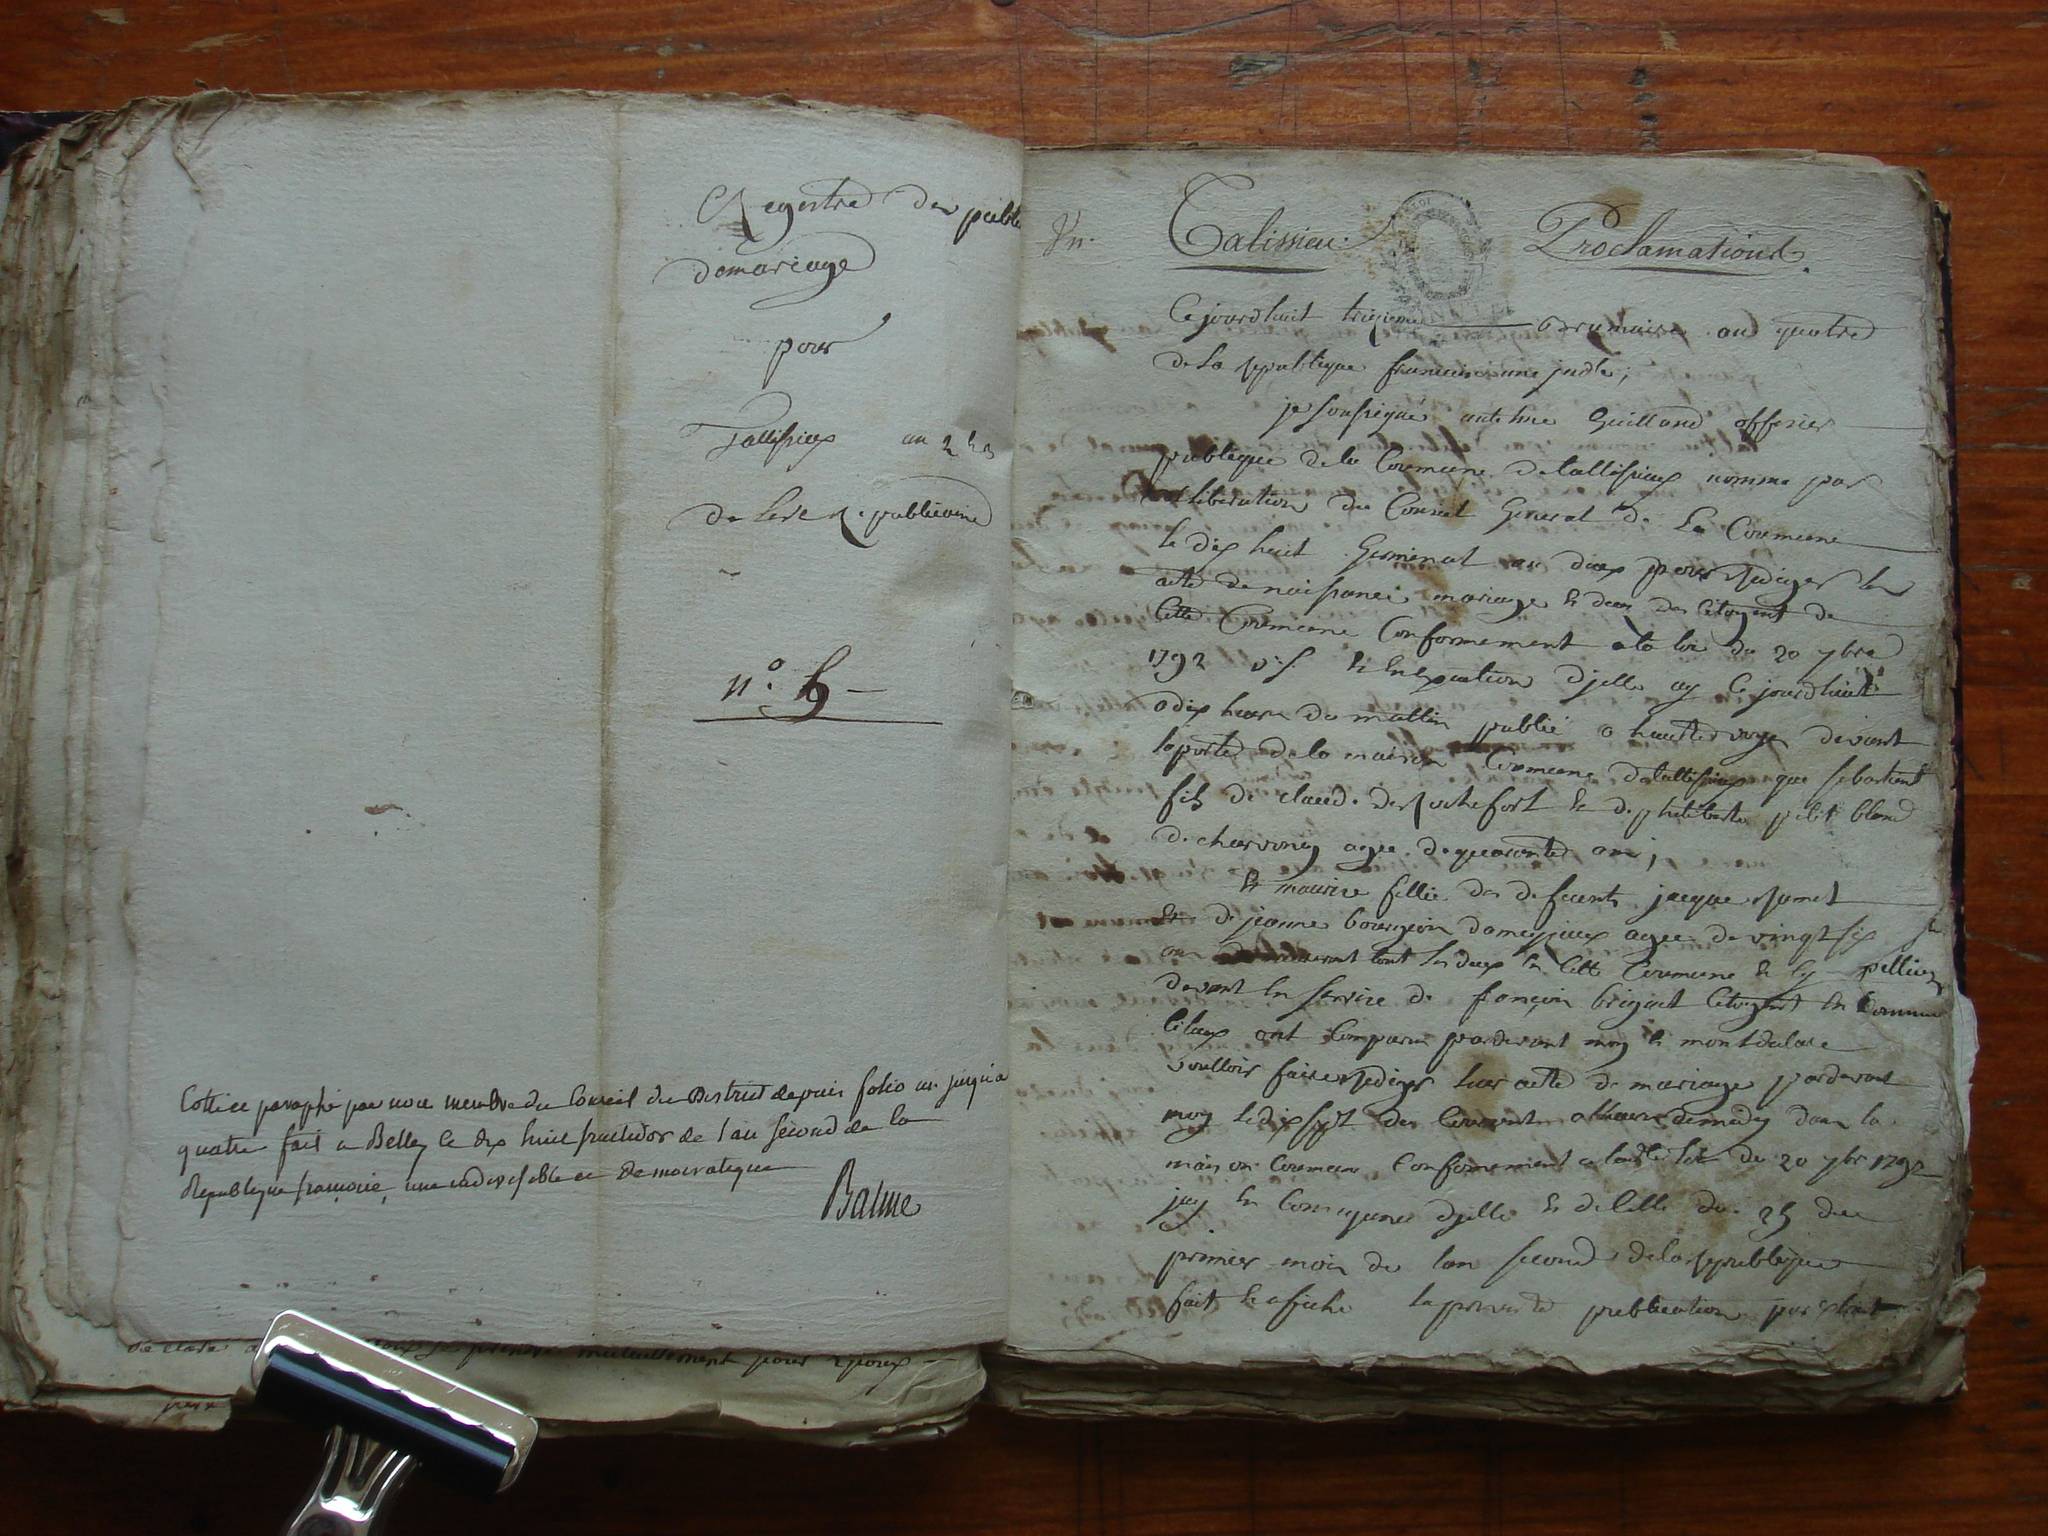 Registre des public
de mariage
pour
Tallissieux an 2 &
de l'ere Republicaine
n.o 6
Cotté et paraphé par nous membre du Conseil du District depuis folio un jusqu'a
quatre fait a Belley le dix huit fructidor de l'an second de la
Republique francoise, une indivisible et democratique
Balme
declare mutuellement pour epoux
Un.
Talissieu. Proclamations.
Ce jourdhuit brumaire and quatre
de la republique francaise une indle;
je soussigné anthme Guilland officier
publique de la Commune de tallissieux nomme par
deliberation du Conseil General de La Commune
le dix huit Germinal an deux pour rediger les
acte de naissance mariage & deces des Citoyent de
Cette Commune Conformement a la loi du 20 7bre
1792 v.s. & En Execution d'jelle ay ce jourdhuit
a dix heure du mattin publié a haute voye devant
la porte de la maison Commune de tallissieux que sebastient
fils de claude de rochefort & de philiberte petit bland
de agee de quarante ans;
& maurise fillie des defeunts jacque
& de jeanne bourgeois dameysieux agee de vingt six
an demeurant tout les deux en Cette Commune & Cy
devant En service de francois brigant Citoyent En Commune
lequx ont Comparu pardevant moy & mont declare
voulloir faire rediger leur acte de mariage pardevant
moy le dix sept des Courant a heure de medy dans la
maison Commune Conformement a la dte loi du 20 7bre 1792
En Consequence d'jelle & de Celle du 25 du
premier mois de lan second de la republique
fait & afiche la presente publication par extrait